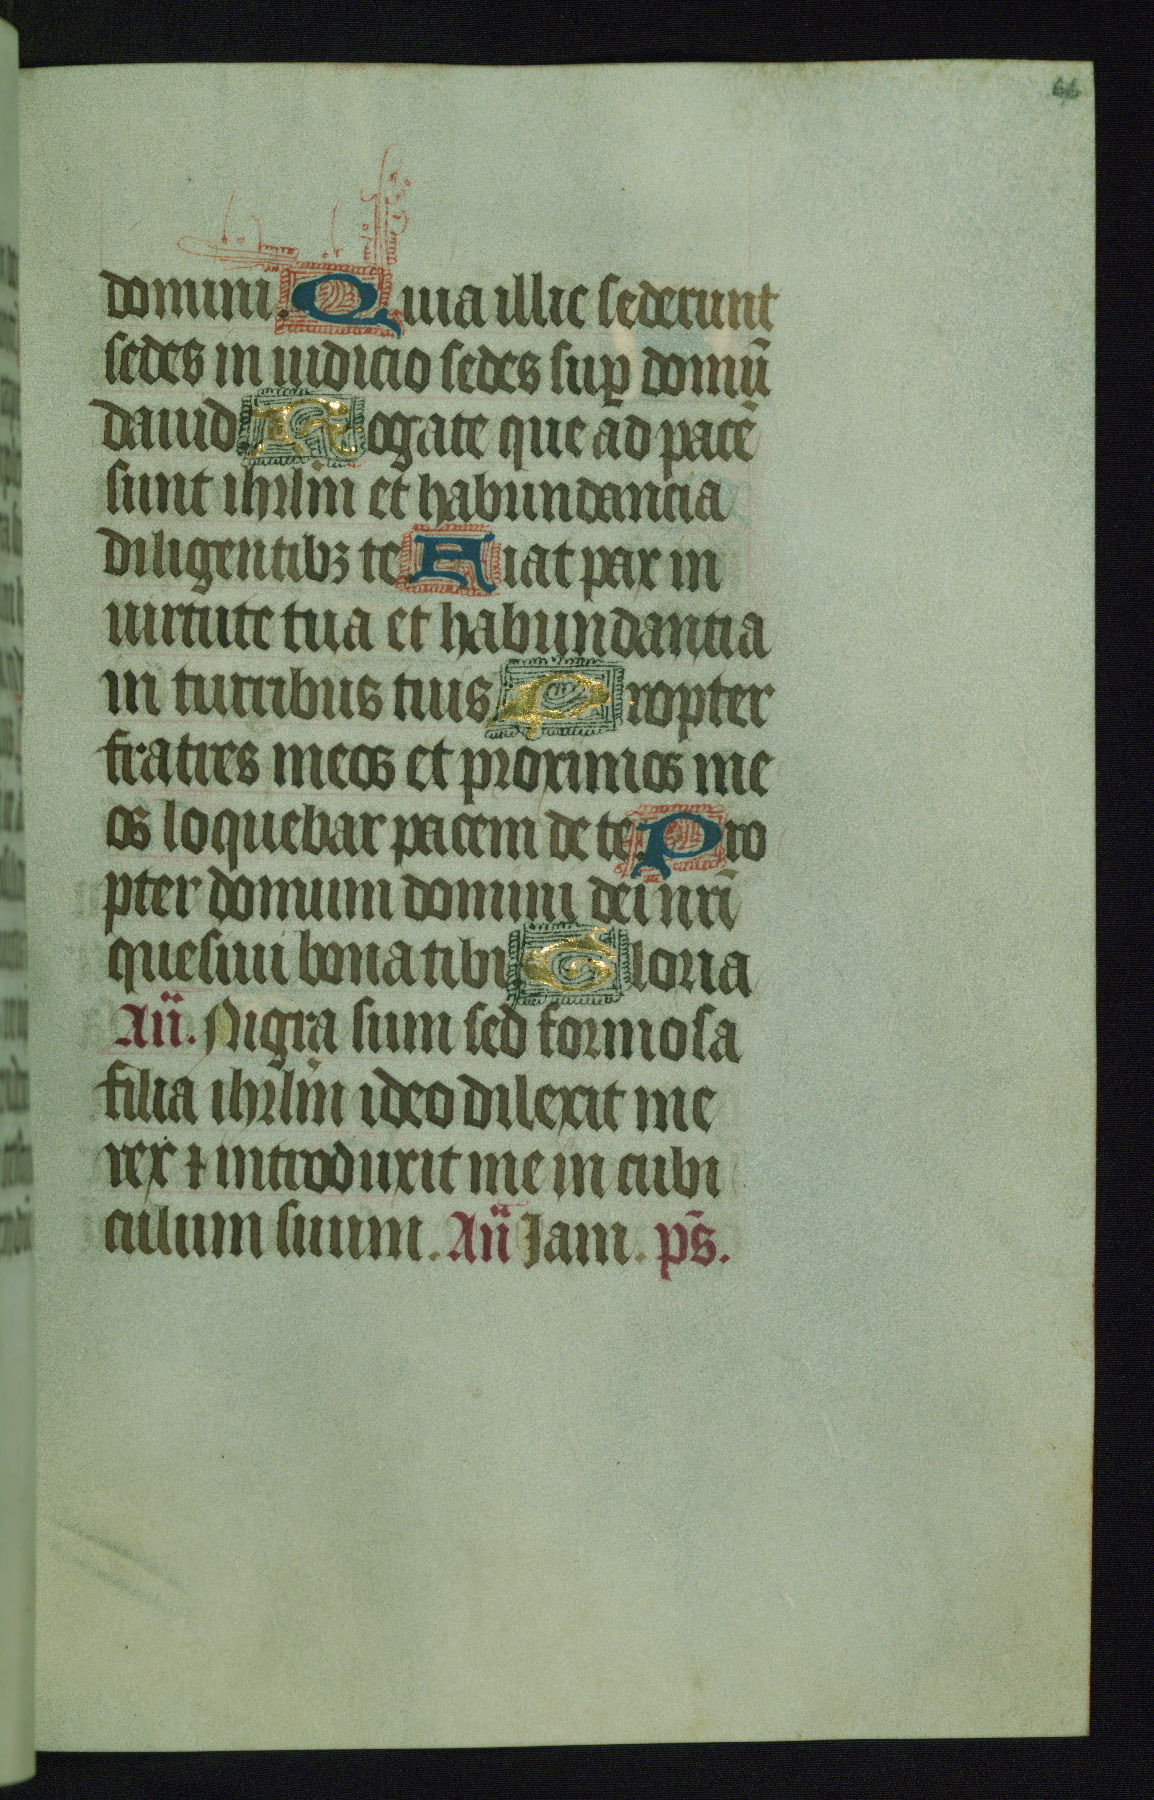 66
domini. Quia illic sederunt
sedes in iudicio sedes sup domū
dauid Rogate que ad pacē
sunt ihrlm et habundancia
diligentibꝫ te Fiat pax in
uirtute tua et habundantia
in turribus tuis Propter
fratres meos et proximos me
os loquebar pacem de te Pro
pter domum domini dei nrī
quesiui bona tibi Gloria
Añ. Nigra sum sed formosa
filia ihrlm ideo dilexit me
rex ⁊ introduxit me in cubi
culum suum. Añ Jam. ps̄.